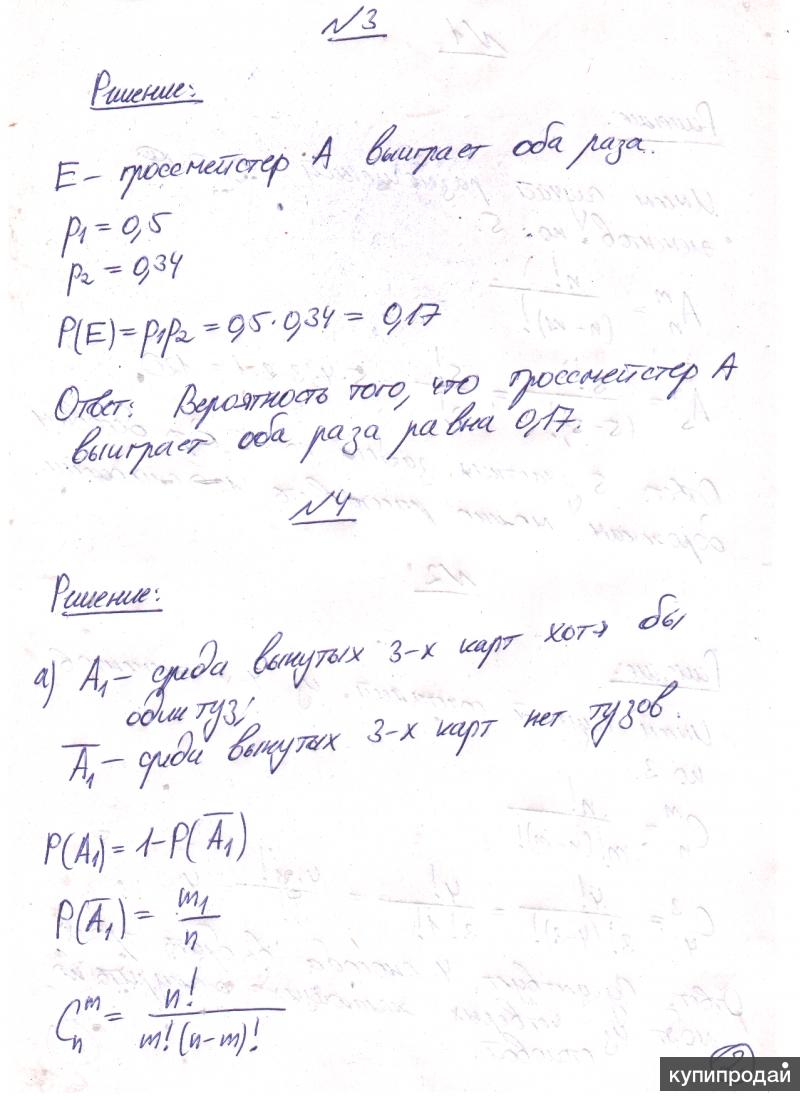 №3
Решение:
E – гроссмейстер А выиграет оба раза.
p₁ = 0,5
p₂ = 0,34
P(E) = p₁p₂ = 0,5·0,34 = 0,17
Ответ: Вероятность того, что гроссмейстер А
выиграет оба раза равна 0,17.
№4
Решение:
а) A₁ – среди вынутых 3-х карт хотя бы
один туз;
A̅₁ – среди вынутых 3-х карт нет тузов.
P(A₁) = 1 – P(A̅₁)
P(A̅₁) = m₁/n
Cₙᵐ = n!/(m!(n-m)!)
купипродай